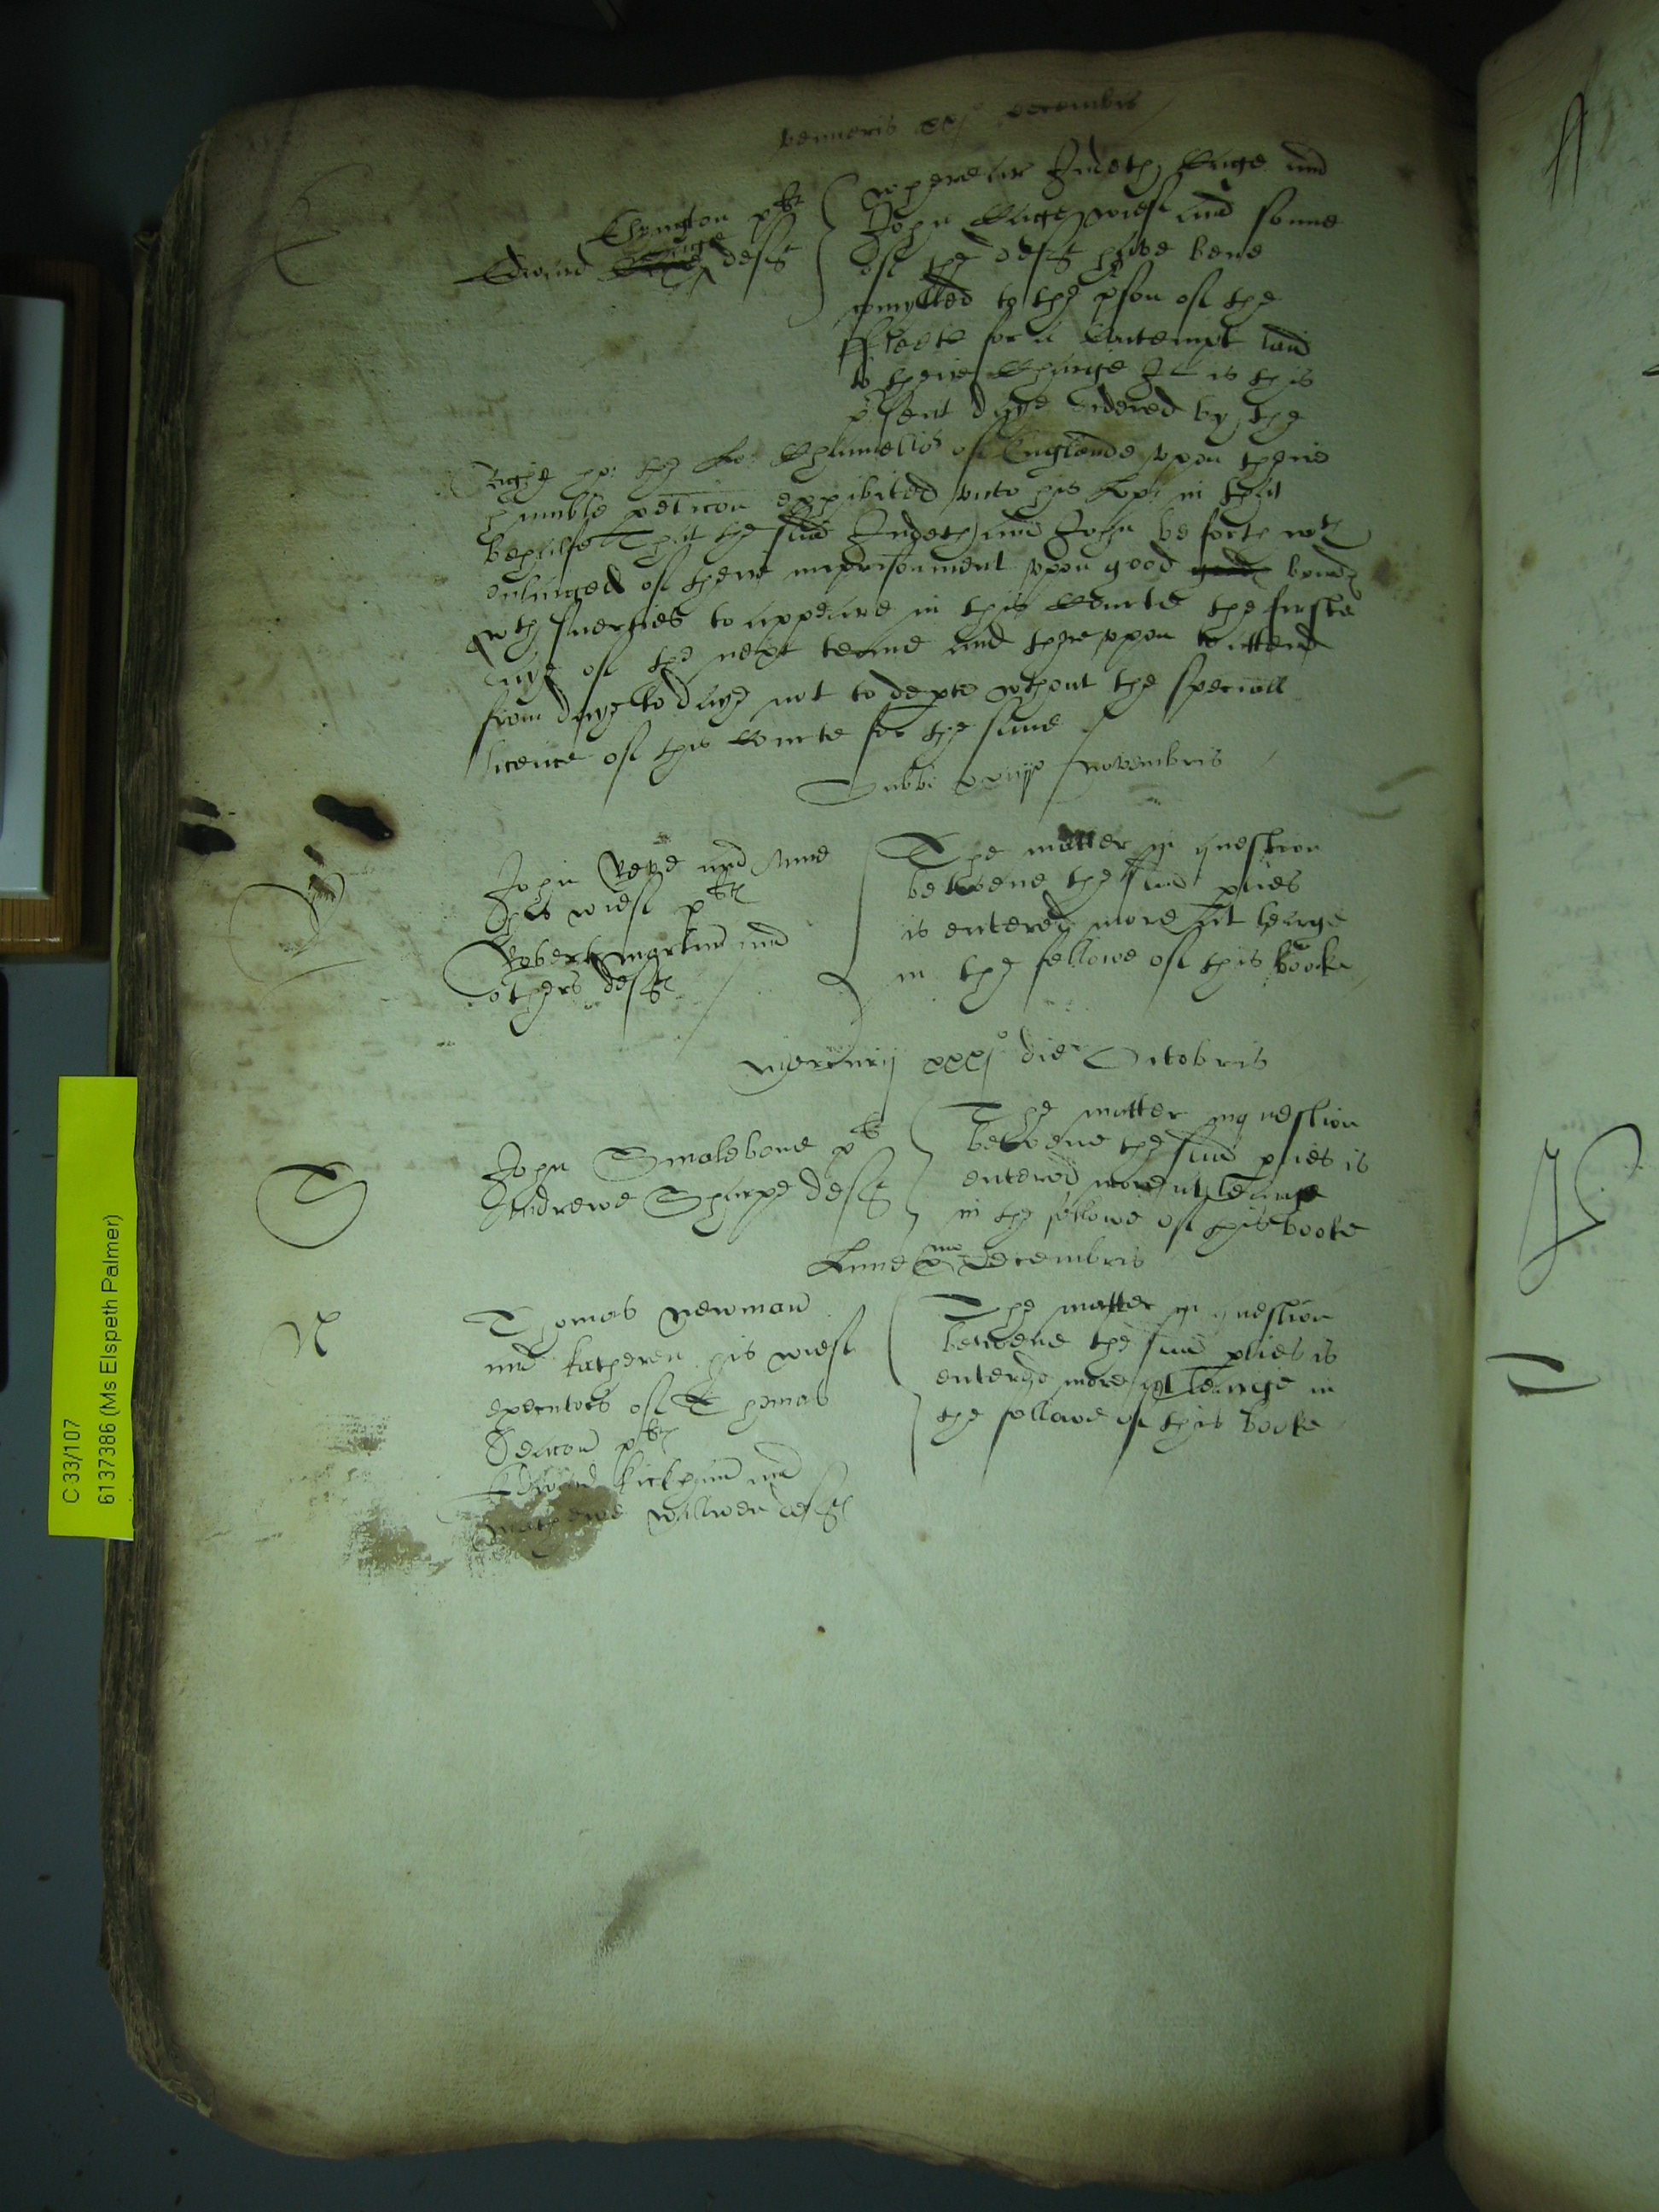 Veneris xxj Decembris
E
Elyngton plt
Edward Cage deft
Whereas Judeth Cage and
John Cage wief and sonne
of the deft have bene
comytted to the pson of the
Fleete for a Contempt laid
to theire Chardge It is this
psent daye ordered by the
Right ho: the Lo: Chauncellor of Englande vpon theire
humble peticon exhibited vnto his Lop: in that
behalfe That the said Judeth and John be forthwth
enlarged of theire imprisonment vppon good bondes
wth suerties to appeare in this Courte the firste
daye of the next terme and therevppon to attend
from daye to daye not to depte wthout the speciall
licence of this Courte for the same
Sabbi xxiiijo Novembris
John and Anne
his wief plts
Robert Martin and
others defts
The matter in question
betwene the said pties
is entered more at learge
in the fellowe of this Booke
Mercurij xxxjo die Octobris
S
John Smalebone plt
Andrewe Sharpe deft
The matter in question
betwene the said pties is
entered more at learge
in the fellowe of this booke
Lune xmo Decembris
N
Thomas Newman
and Katheren his wief
executors of Thomas
Deacon plts
Edward Kickham and
Mathewe defts
The matter in question
betwene the said pties is
entered more at learge in
the fellowe of this Booke
C 33/107
6137386 (Ms Elspeth Palmer)